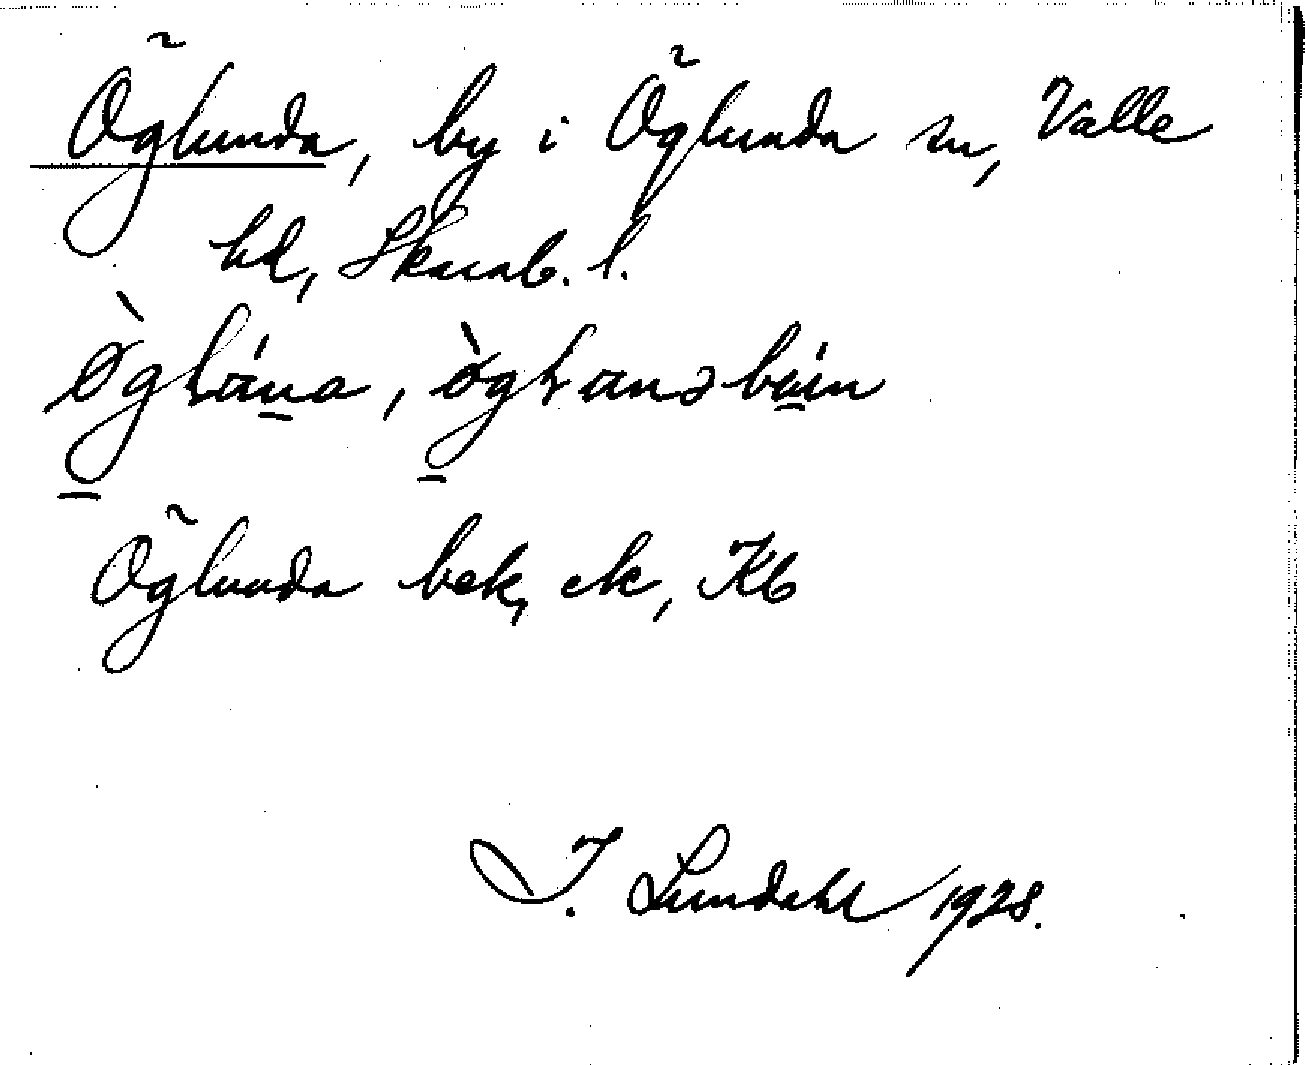 Öglunda, by i Öglunda sn, Valle
hd, Skarab. l.
Öglunda bek, ek, Kb
I. Lundahl 1928.